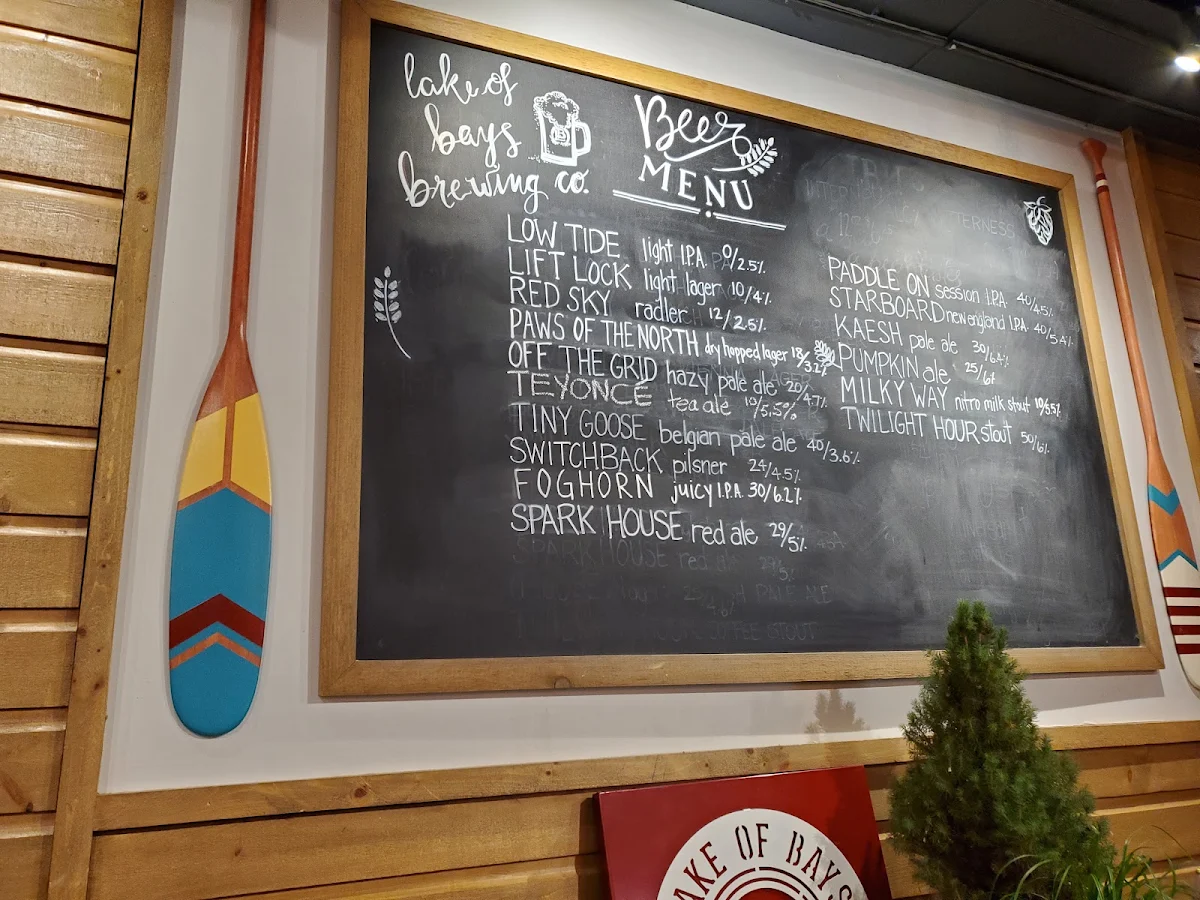 lake of
bays
brewing co.
Beer
MENU
LOW TIDE light I.P.A. 0/2.5%
LIFT LOCK light lager 10/4%
RED SKY radler 12/2.5%
PAWS OF THE NORTH dry hopped lager 18/3.2%
OFF THE GRID hazy pale ale 20/4.7%
TEYONCE tea ale 10/5.5%
TINY GOOSE belgian pale ale 40/3.6%
SWITCHBACK pilsner 24/4.5%
FOGHORN juicy I.P.A. 30/6.2%
SPARK HOUSE red ale 29/5%
PADDLE ON session I.P.A. 40/4.5%
STARBOARD new england I.P.A. 40/5.4%
KAESH pale ale 30/6.4%
PUMPKIN ale 25/6%
MILKY WAY nitro milk stout 10/5.5%
TWILIGHT HOUR stout 50/6%
TERNESS
SPARK HOUSE red
PALE ALE
STOUT
LAKE OF BAYS